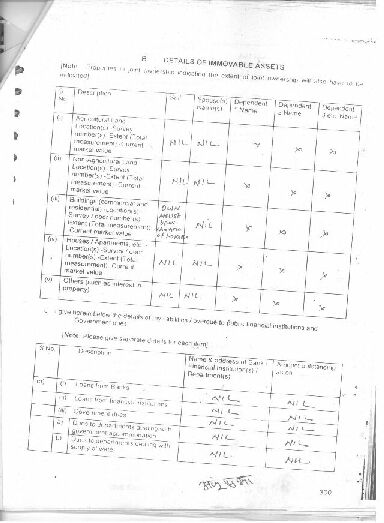 B. DETAILS OF IMMOVABLE ASSETS
(Note: Properties in joint ownership indicating the extent of joint ownership will also have to be
indicated)
S. No. Description Self Spouse(s) Name(s) Dependent 1 Name Dependent 2 Name Dependent 3 etc. Name
(i) Agricultural Land
Location(s) - Survey
number(s) - Extent (Total
measurement) - Current
market value
NIL NIL x x x
(ii) Non-Agricultural Land
Location(s) - Survey
number(s) - Extent (Total
measurement) - Current
market value
NIL NIL x x x
(iii) Buildings (commercial and
residential) - Location(s)
Survey / door number(s)
Extent (Total measurement)
Current market value
OWN
HOUSE
NIL x x x
(iv) Houses / Apartments, etc. -
Location(s) - Survey / door
number(s) - Extent (Total
measurement) - Current
market value
NIL NIL x x x
(v) Others (such as interest in
property)
NIL NIL x x x
give herein below the details of my liabilities / overdue to public financial institutions and
Government dues
(Note: Please give separate details for each item)
S.No. Description Name & address of Bank / Financial Institution(s) / Department(s) Amount outstanding
(i) Loans from Banks NIL NIL
(ii) Loans from financial institutions NIL NIL
(iii) Government dues NIL NIL
Dues to departments dealing with
government accommodation
NIL NIL
Dues to departments dealing with
supply of water
NIL NIL